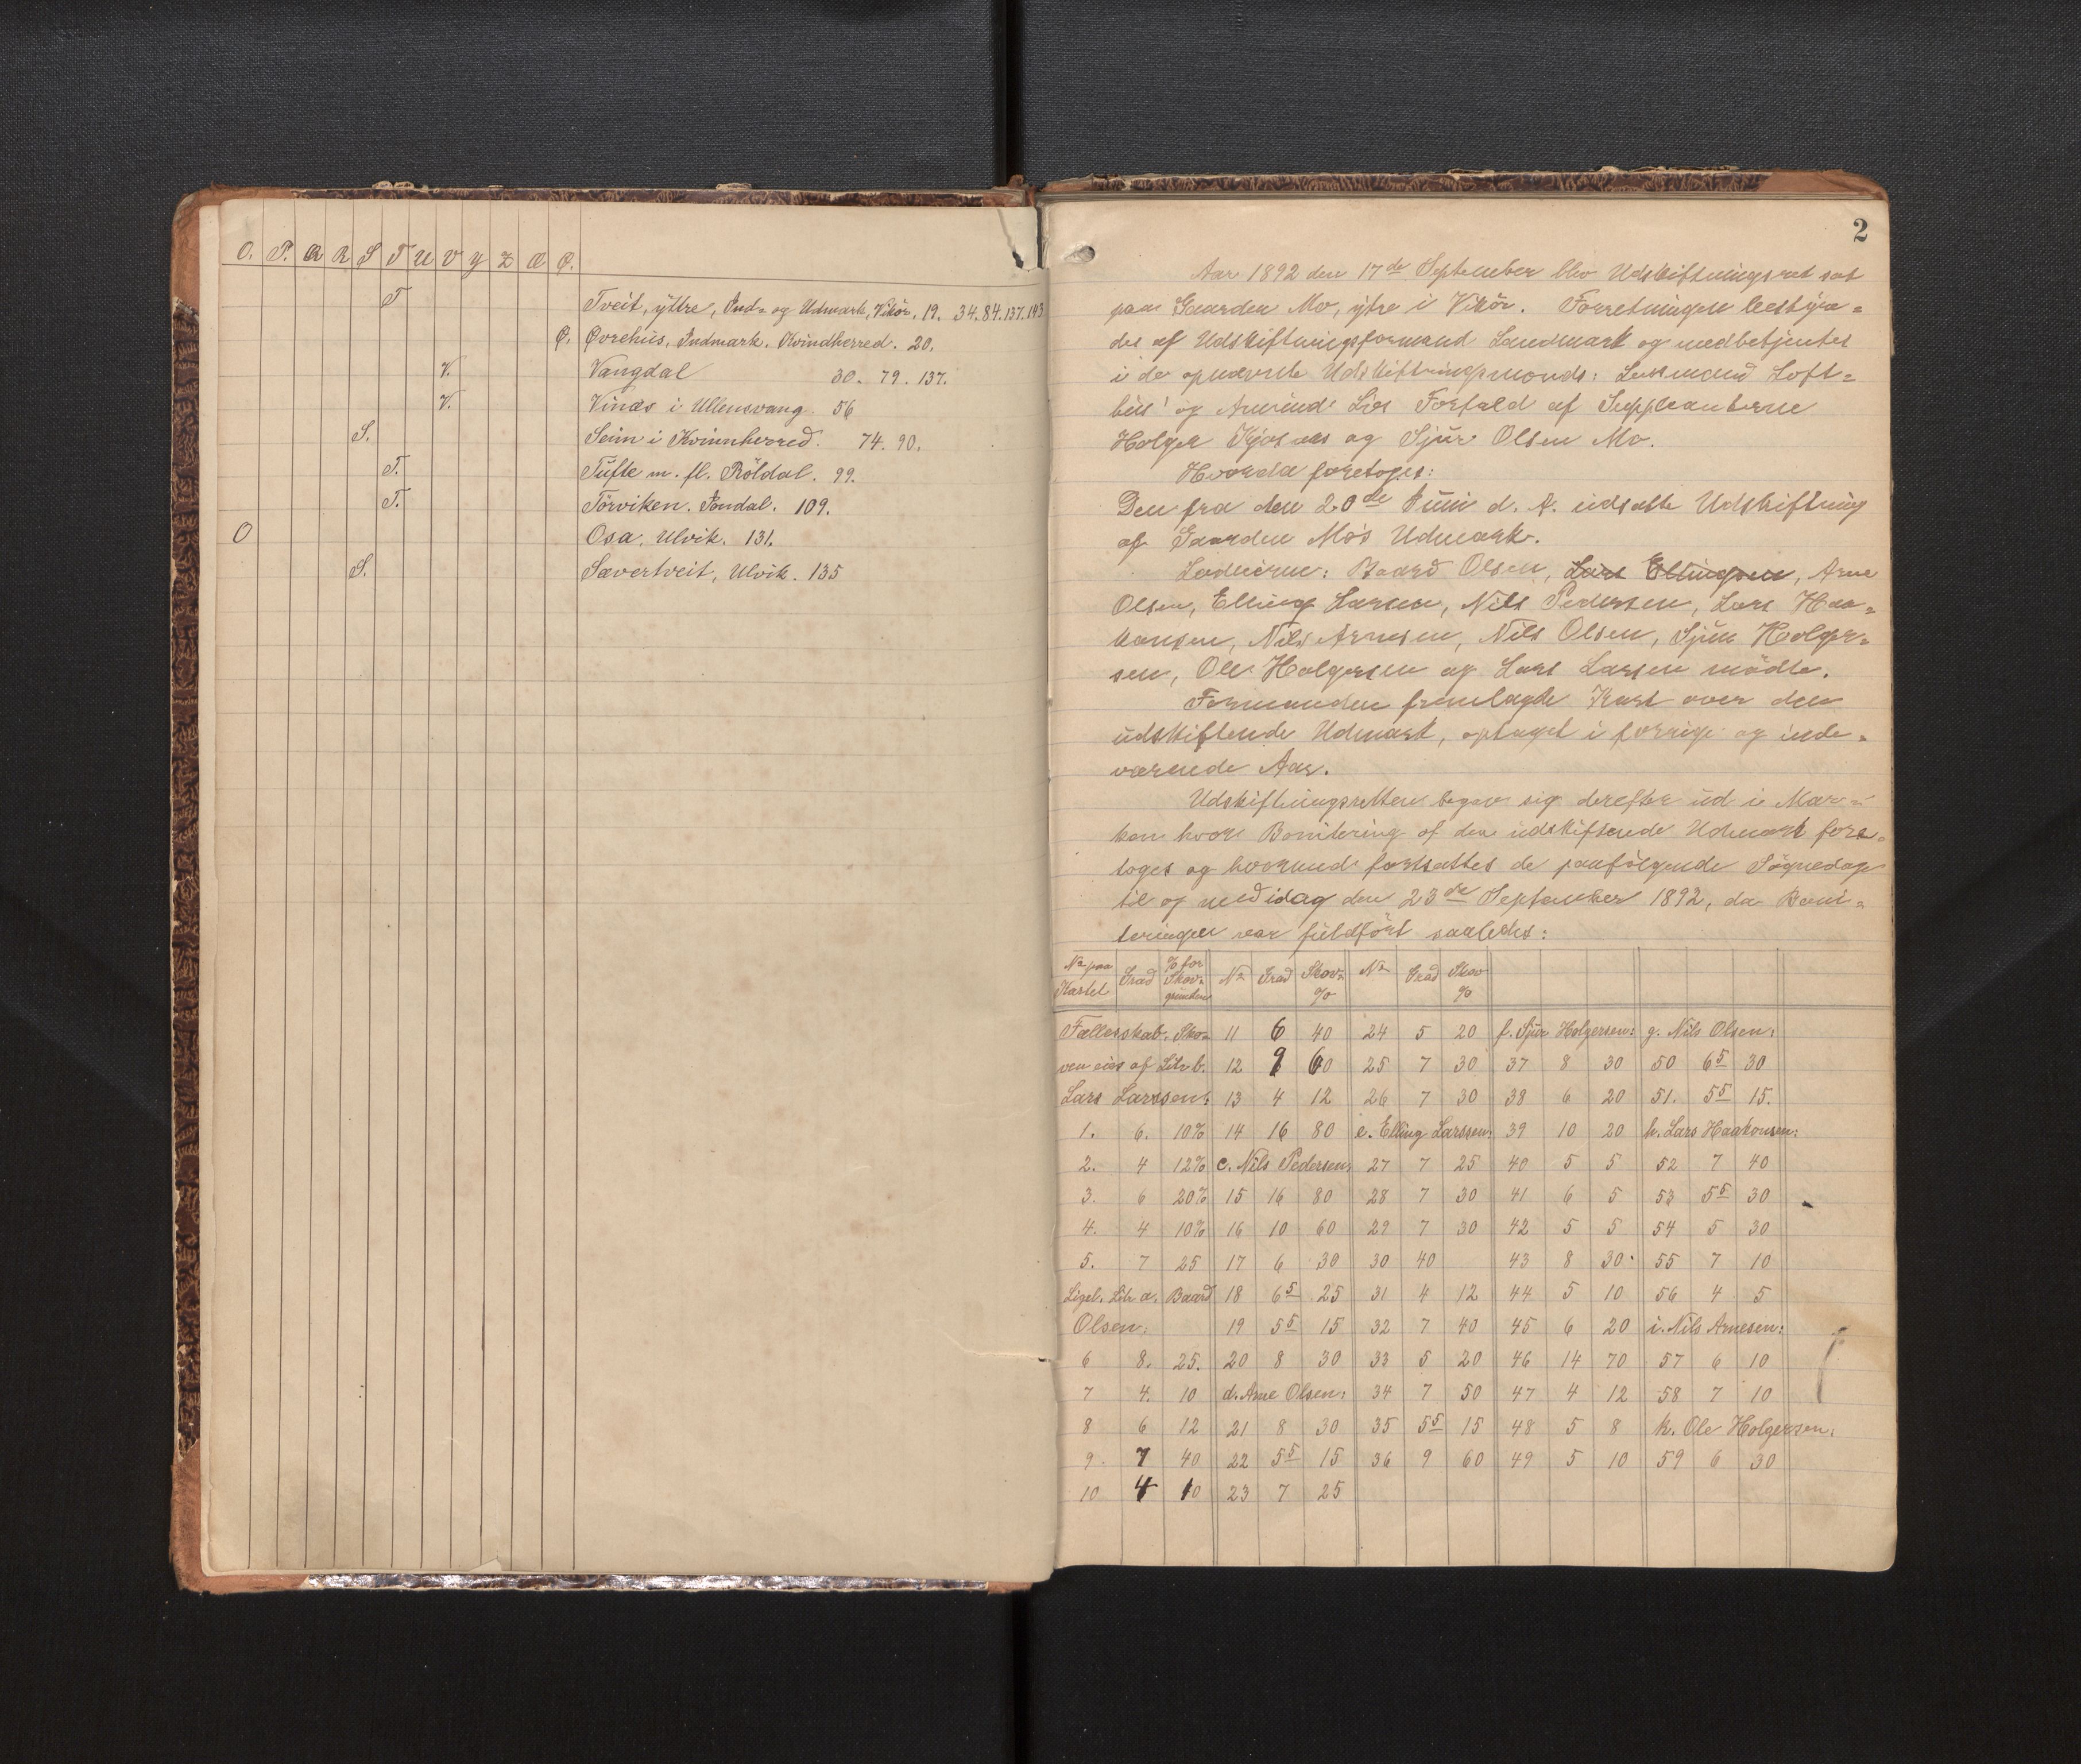 O. P. Q R S T U V Y Z Æ Ø.
T Tveit, yttre, Ind= og Udmark, Vikör. 19. 34. 84. 137. 143
Ø. Øvrehus, Indmark. Kvindherred. 20.
V. Vangdal 30. 79. 137.
V. Vinæs i Ullensvang. 56
S. Seim i Kvinnherred. 74. 90.
T. Tufte m. fl. Röldal. 99.
T. Törviken. Jondal. 109.
O Osa, Ulvik. 131.
S. Sævertveit, Ulvik. 135
2
Aar 1892 den 17de September blev Udskiftningsret sat
paa Gaarden Mo, ytre i Vikör. Forretningen bestyre=
des af Udskiftningsformand Landmark og medbetjentes
i de opnævnte Udskiftningsmænds: Lensmand Loft=
hus' og Amund Lies Forfald af Suppleanterne
Holger Kjosaas og Sjur Olsen Mo.
Hvorda foretoges:
Den fra den 20de Juni d. A. udsatte Udskiftning
af Gaarden Mo's Udmark.
Lodeierne: Baard Olsen, Lars Ellingsen, Arne
Olsen, Elling Larsen, Nils Pedersen, Lars Haa=
konsen, Nils Arnesen, Nils Olsen, Sjur Holger=
sen, Ole Holgersen og Lars Larsen mödte.
Formanden fremlagde Kart over den
udskiftende Udmark, optaget i forrige og inde=
værende Aar.
Udskiftningsretten begav sig derefter ud i Mar=
ken hvor Bonitering af den udskiftende Udmark fore=
toges og hvormed fortsattes de paafölgende Sögnedage
til og med idag den 23de September 1892, da Boni=
teringen var fuldfört saaledes:
No paa Kartet Grad % for Skov= grunden No Grad Skov= % No Grad Skov %
Fællesskab. Sko= 11 6 40 24 5 20 f. Sjur Holgersen: g. Nils Olsen:
ven eies af Litr b. 12 9 60 25 7 30 37 8 30 50 65 30
Lars Larssen: 13 4 12 26 7 30 38 6 20 51. 55 15.
1. 6. 10% 14 16 80 e. Elling Larssen: 39 10 20 h. Lars Haakonsen:
2. 4 12% c. Nils Pedersen: 27 7 25 40 5 5 52 7 40
3. 6 20% 15 16 80 28 7 30 41 6 5 53 55 30
4. 4 10% 16 10 60 29 7 30 42 5 5 54 5 30
5. 7 25 17 6 30 30 40 43 8 30. 55 7 10
Ligel. Litr a. Baard 18 65 25 31 4 12 44 5 10 56 4 5
Olsen: 19 55 15 32 7 40 45 6 20 i. Nils Arnesen:
6 8. 25. 20 8 30 33 5 20 46 14 70 57 6 10
7 4. 10 d. Arne Olsen: 34 7 50 47 4 12 58 7 10
8 6 12 21 8 30 35 55 15 48 5 8 k. Ole Holgersen:
9. 7 40 22 55 15 36 9 60 49 5 10 59 6 30
10 4 10 23 7 25